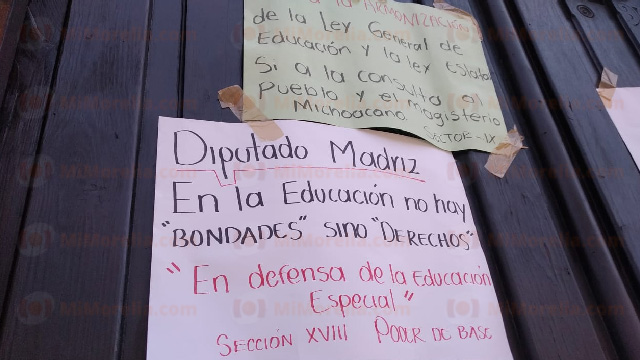 a la Armonización
de la Ley General de
Educación y la Ley Estatal
Si a la consulta al
Pueblo y el magisterio
Michoacano
SECTOR-IX
Diputado Madriz
En la Educación no hay
"BONDADES" sino "DERECHOS"
"En defensa de la Educación
Especial"
SECCIÓN XVIII PODER DE BASE
MiMorelia.com